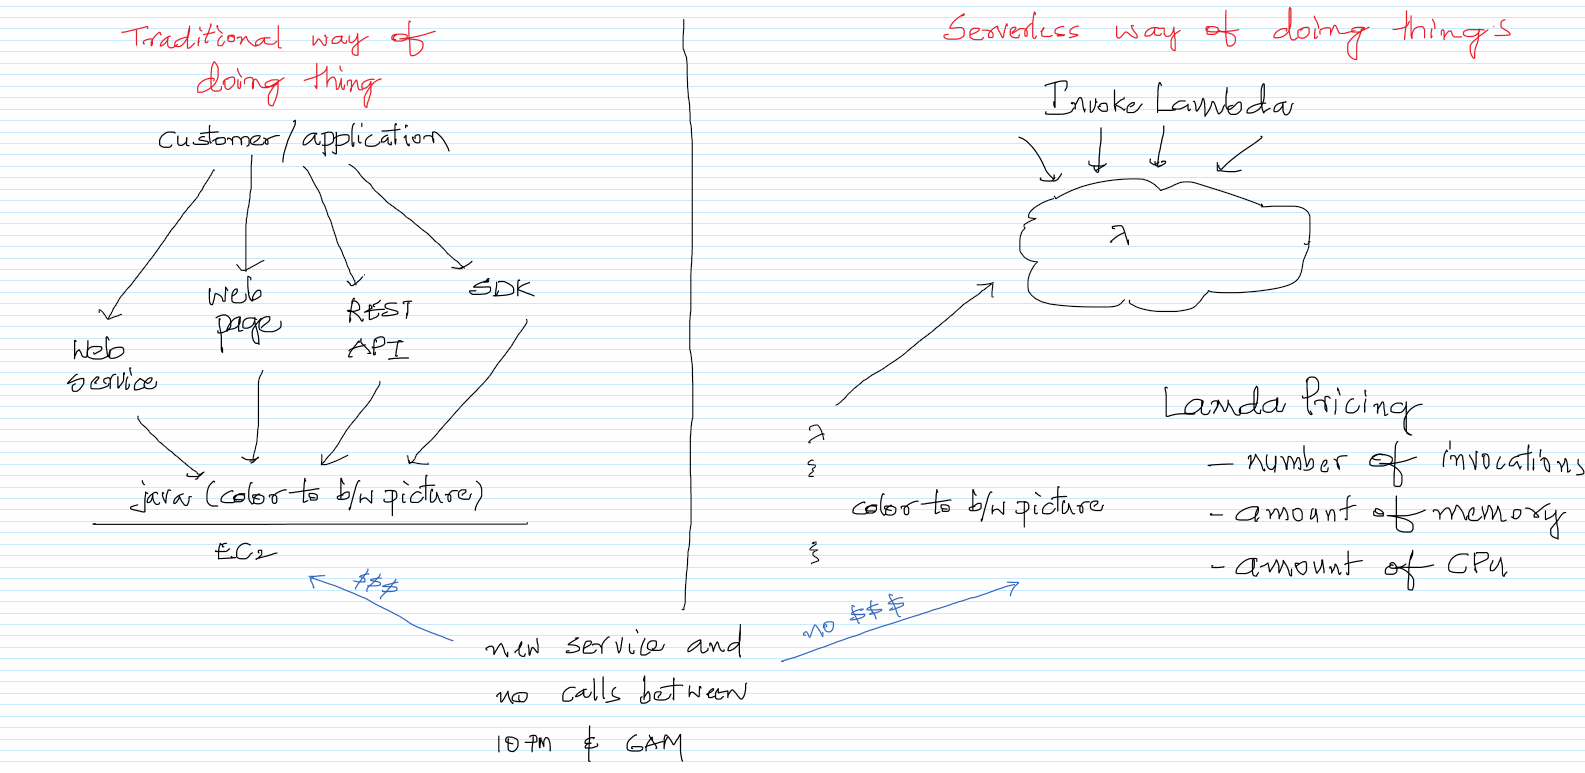 Traditional way of
doing thing
customer/application
Web
service
web
page
REST
API
SDK
java (color to b/w picture)
EC2
$$$
new service and
no calls between
10 PM & 6AM
no $$$
Serverless way of doing things
Invoke Lambda
λ
λ
{
color to b/w picture
}
Lamda Pricing
- number of invocations
- amount of memory
- amount of CPU